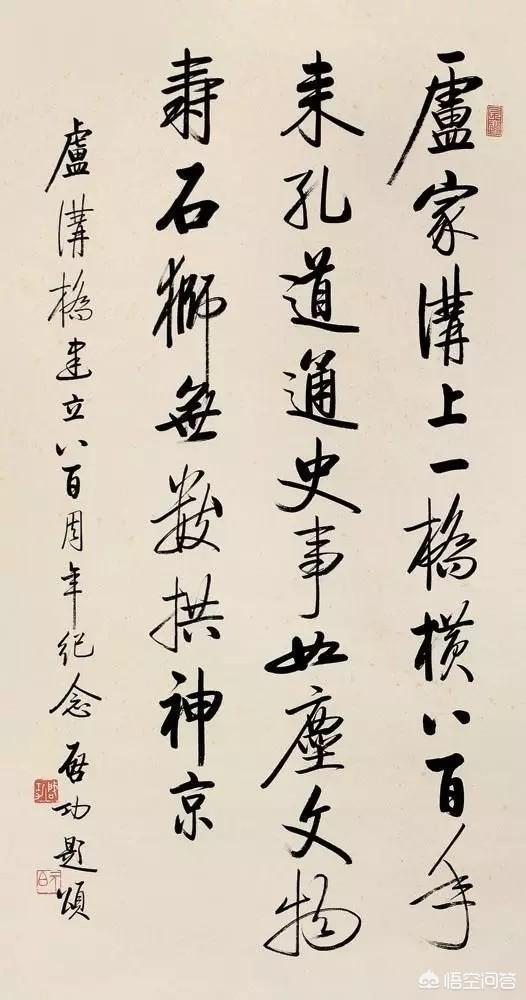 盧家溝上一橋横八百年
来孔道通史事如塵文物
壽石獅無數拱神京
盧溝橋建立八百周年纪念 啓功題頌
悟空问答